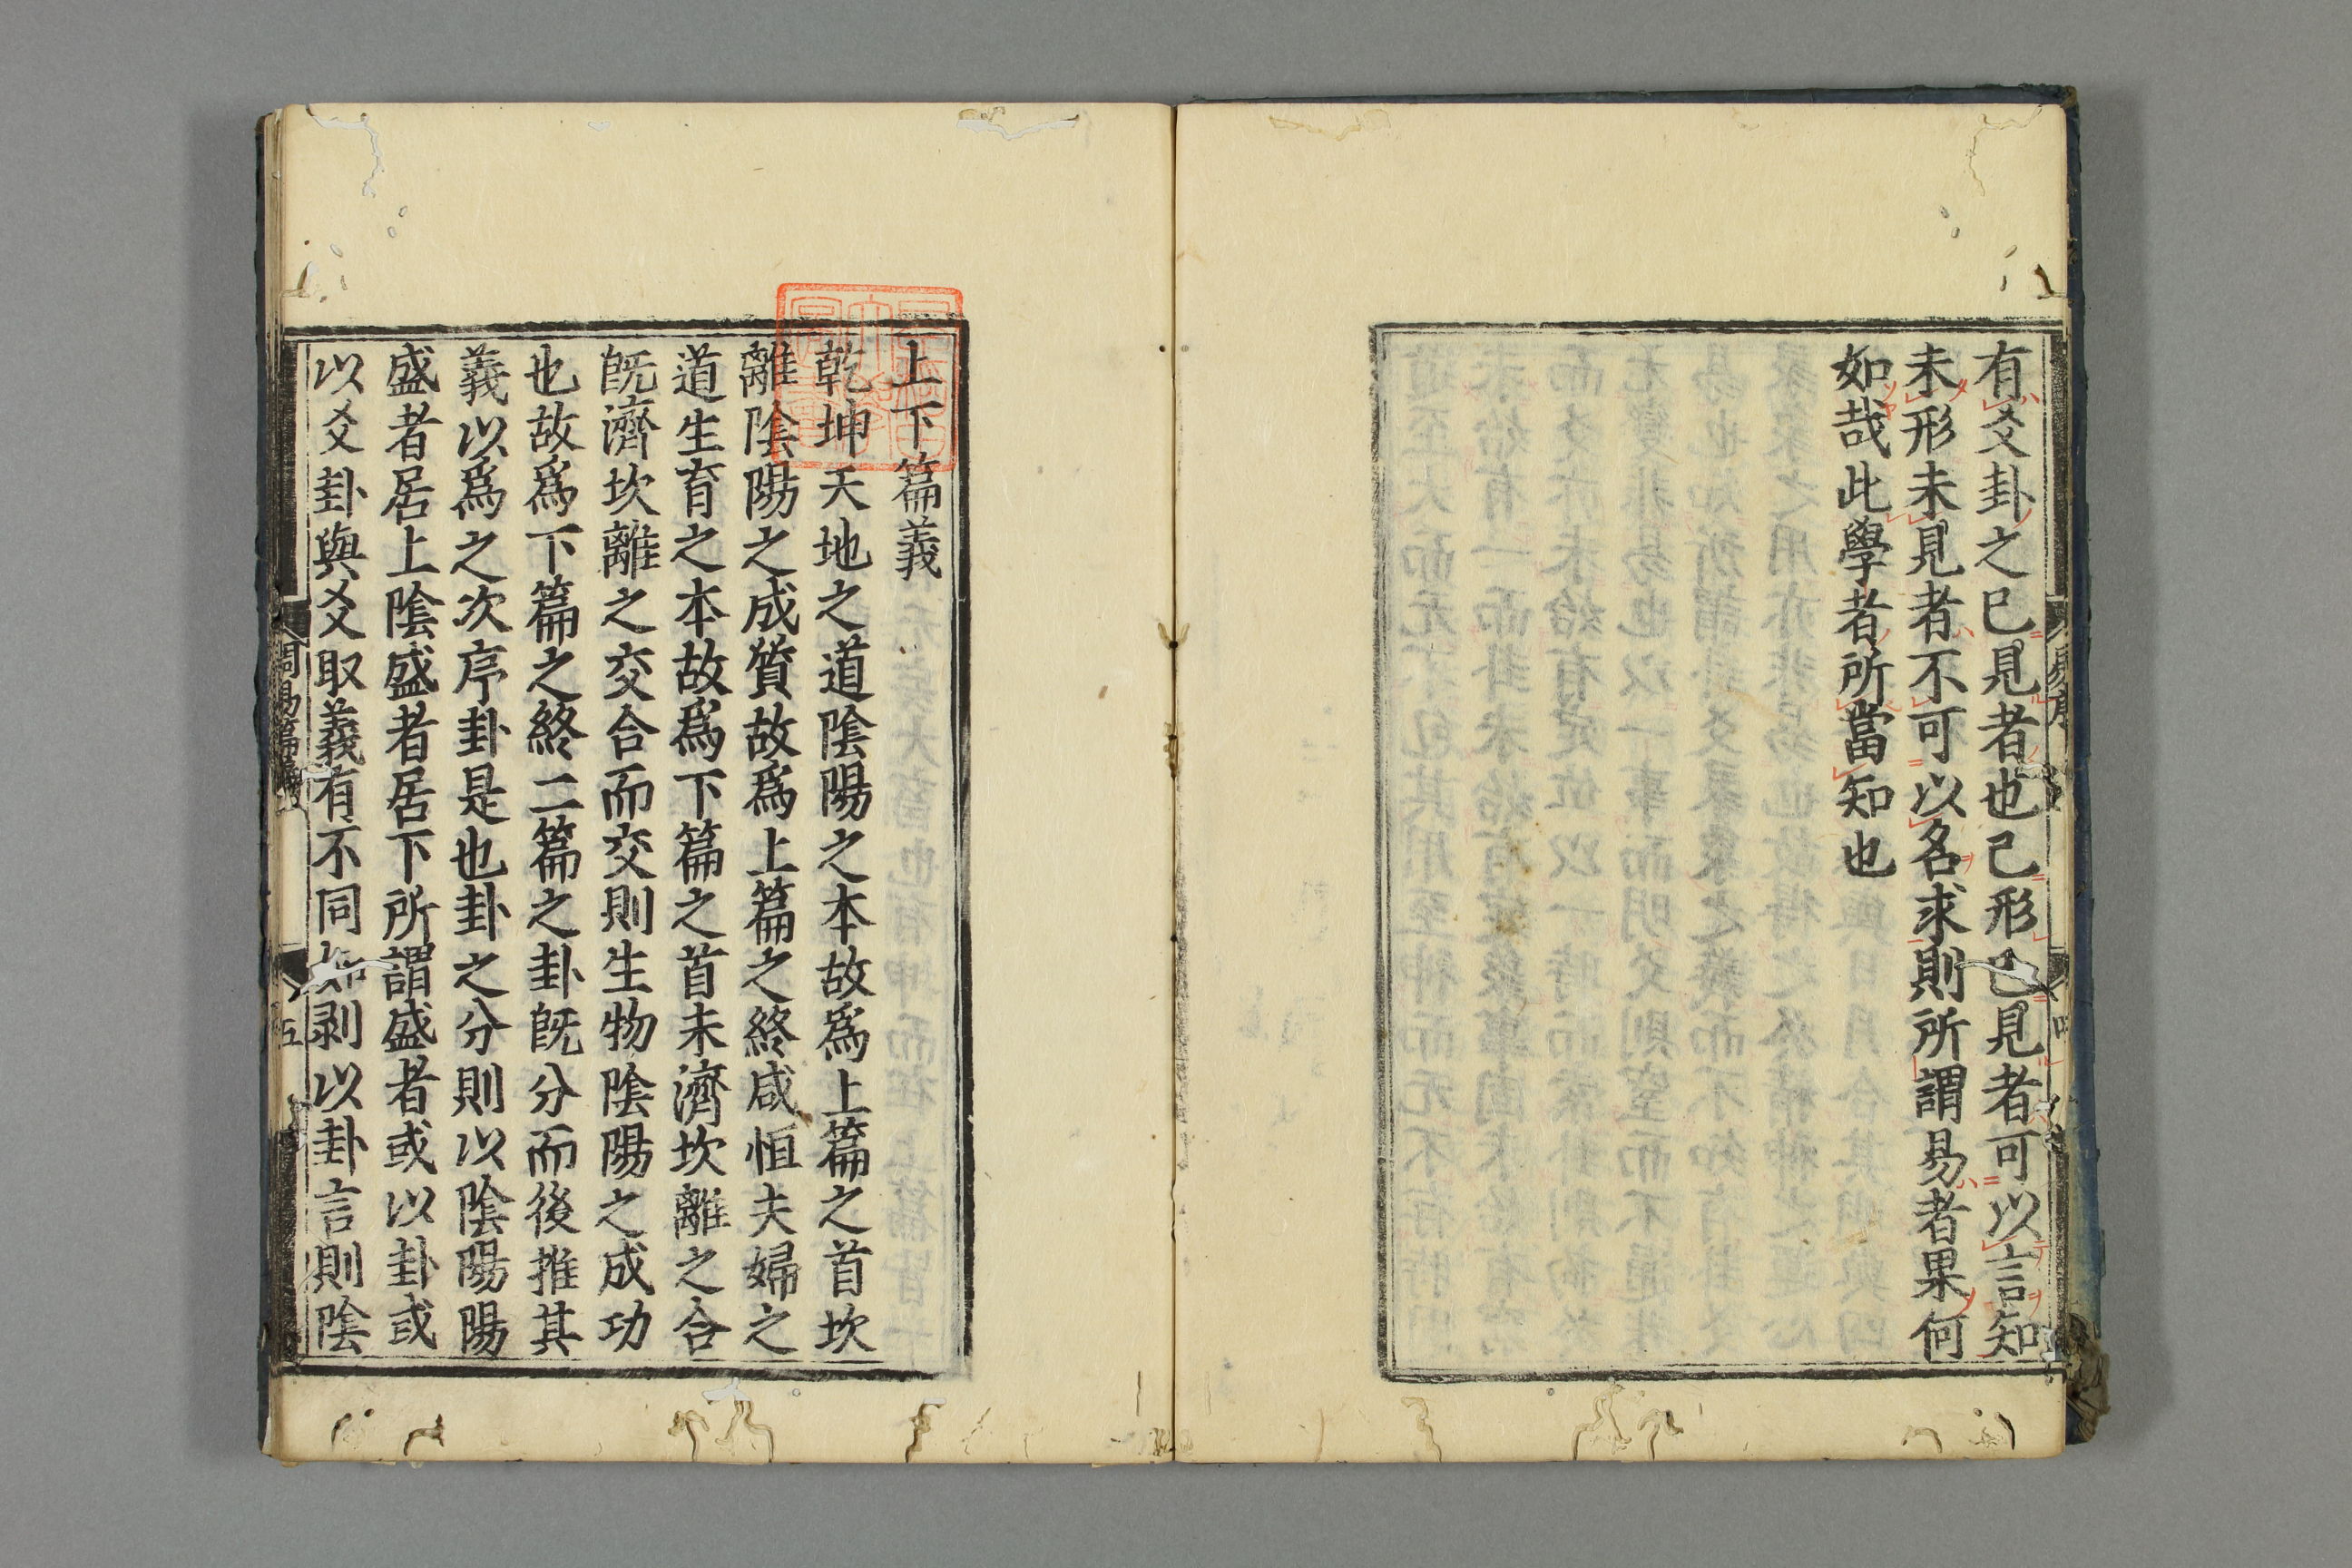 有爻卦之已見者也已形已見者可以言知
未形未見者不可以名求則所謂易者果何
如哉此學者所當知也
易序
上下篇義
乾坤天地之道陰陽之本故爲上篇之首坎
離陰陽之成質故爲上篇之終咸恒夫婦之
道生育之本故爲下篇之首未濟坎離之合
旣濟坎離之交合而交則生物陰陽之成功
也故爲下篇之終二篇之卦旣分而後推其
義以爲之次序卦是也卦之分則以陰陽陽
盛者居上陰盛者居下所謂盛者或以卦或
以爻卦與爻取義有不同如剥以卦言則陰
周易篇義
五